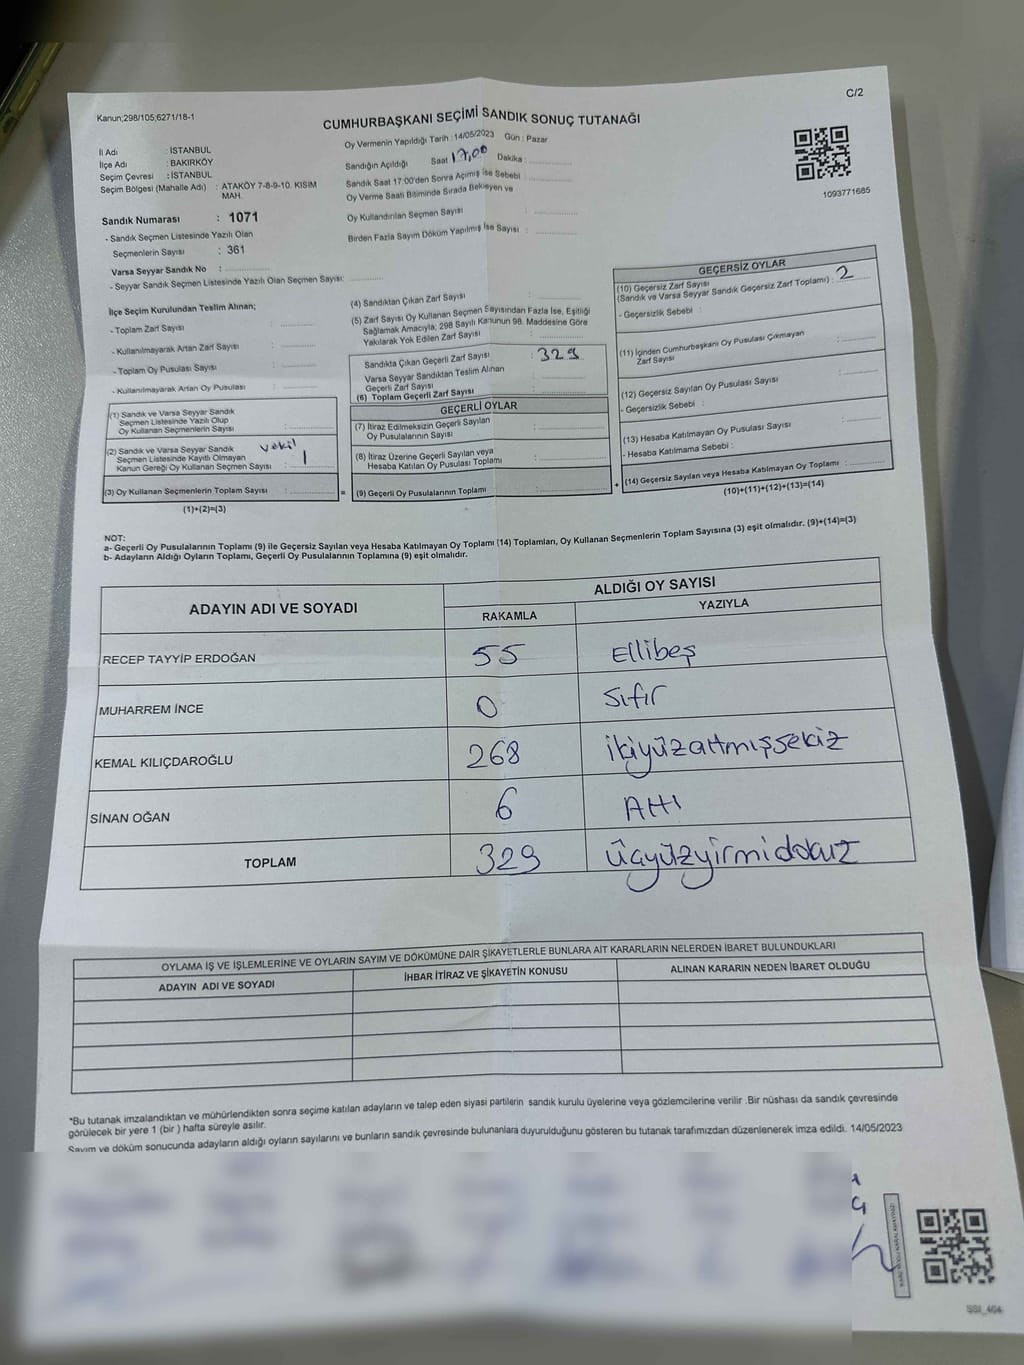 C/2
Kanun;298/105,6271/18-1
CUMHURBAŞKANI SEÇİMİ SANDIK SONUÇ TUTANAĞI
İl Adı : İSTANBUL
İlçe Adı : BAKIRKÖY
Seçim Çevresi : İSTANBUL
Seçim Bölgesi (Mahalle Adı) : ATAKÖY 7-8-9-10. KISIM
MAH.
Sandık Numarası : 1071
- Sandık Seçmen Listesinde Yazılı Olan
Seçmenlerin Sayısı : 361
Varsa Seyyar Sandık No :
- Seyyar Sandık Seçmen Listesinde Yazılı Olan Seçmen Sayısı:
Oy Vermenin Yapıldığı Tarih : 14/05/2023 Gün : Pazar
Sandığın Açıldığı Saat 17,00 Dakika :
Sandık Saat 17:00'den Sonra Açımış İse Sebebi :
Oy Verme Saati Bitiminde Sırada Bekleyen ve
Oy Kullandırılan Seçmen Sayısı :
Birden Fazla Sayım Döküm Yapılmış İse Sayısı :
1093771685
İlçe Seçim Kurulundan Teslim Alınan;
- Toplam Zarf Sayısı :
- Kullanılmayarak Artan Zarf Sayısı :
- Toplam Oy Pusulası Sayısı :
- Kullanılmayarak Artan Oy Pusulası :
(1) Sandık ve Varsa Seyyar Sandık
Seçmen Listesinde Yazılı Olup
Oy Kullanan Seçmenlerin Sayısı :
(2) Sandık ve Varsa Seyyar Sandık vekil
Seçmen Listesinde Kayıtlı Olmayan
Kanun Gereği Oy Kullanan Seçmen Sayısı : 1
(3) Oy Kullanan Seçmenlerin Toplam Sayısı : =
(1)+(2)=(3)
(4) Sandıktan Çıkan Zarf Sayısı :
(5) Zarf Sayısı Oy Kullanan Seçmen Sayısından Fazla İse, Eşitliği
Sağlamak Amacıyla; 298 Sayılı Kanunun 98. Maddesine Göre
Yakılarak Yok Edilen Zarf Sayısı :
Sandıkta Çıkan Geçerli Zarf Sayısı : 329
Varsa Seyyar Sandıktan Teslim Alınan
Geçerli Zarf Sayısı :
(6) Toplam Geçerli Zarf Sayısı :
GEÇERLİ OYLAR
(7) İtiraz Edilmeksizin Geçerli Sayılan
Oy Pusulalarının Sayısı :
(8) İtiraz Üzerine Geçerli Sayılan veya
Hesaba Katılan Oy Pusulası Toplamı :
(9) Geçerli Oy Pusulalarının Toplamı : +
GEÇERSİZ OYLAR
(10) Geçersiz Zarf Sayısı
(Sandık ve Varsa Seyyar Sandık Geçersiz Zarf Toplamı) : 2
- Geçersizlik Sebebi :
(11) İçinden Cumhurbaşkanı Oy Pusulası Çıkmayan
Zarf Sayısı :
(12) Geçersiz Sayılan Oy Pusulası Sayısı :
- Geçersizlik Sebebi :
(13) Hesaba Katılmayan Oy Pusulası Sayısı :
- Hesaba Katılmama Sebebi :
(14) Geçersiz Sayılan veya Hesaba Katılmayan Oy Toplamı :
(10)+(11)+(12)+(13)=(14)
NOT:
a- Geçerli Oy Pusulalarının Toplamı (9) ile Geçersiz Sayılan veya Hesaba Katılmayan Oy Toplamı (14) Toplamları, Oy Kullanan Seçmenlerin Toplam Sayısına (3) eşit olmalıdır. (9)+(14)=(3)
b- Adayların Aldığı Oyların Toplamı, Geçerli Oy Pusulalarının Toplamına (9) eşit olmalıdır.
ADAYIN ADI VE SOYADI
ALDIĞI OY SAYISI
RAKAMLA YAZIYLA
RECEP TAYYİP ERDOĞAN 55 Ellibeş
MUHARREM İNCE 0 Sıfır
KEMAL KILIÇDAROĞLU 268 ikiyüzaltmışsekiz
SİNAN OĞAN 6 Altı
TOPLAM 329 üçyüzyirmidokuz
OYLAMA İŞ VE İŞLEMLERİNE VE OYLARIN SAYIM VE DÖKÜMÜNE DAİR ŞİKAYETLERLE BUNLARA AİT KARARLARIN NELERDEN İBARET BULUNDUKLARI
ADAYIN ADI VE SOYADI İHBAR İTİRAZ VE ŞİKAYETİN KONUSU ALINAN KARARIN NEDEN İBARET OLDUĞU
*Bu tutanak imzalandıktan ve mühürlendikten sonra seçime katılan adayların ve talep eden siyasi partilerin sandık kurulu üyelerine veya gözlemcilerine verilir .Bir nüshası da sandık çevresinde
görülecek bir yere 1 (bir ) hafta süreyle asılır.
Sayım ve döküm sonucunda adayların aldığı oyların sayılarını ve bunların sandık çevresinde bulunanlara duyurulduğunu gösteren bu tutanak tarafımızdan düzenlenerek imza edildi. 14/05/2023
SSI_464